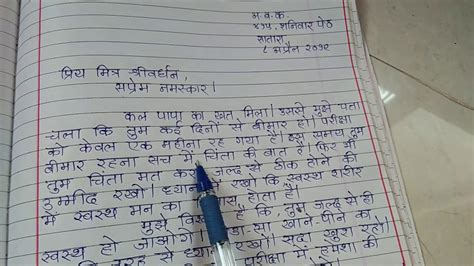 अ. ब. क.
४२५, शनिवार पेठ
सातारा,
८ अप्रैल २०१२
प्रिय मित्र श्रीवर्धन,
सप्रेम नमस्कार।
कल पापा का खत मिला। उससे मुझे पता
चला कि तुम कई दिनों से बीमार हो। परीक्षा
को केवल एक महीना रह गया है। इस समय तुम
बीमार रहना सच में चिंता की बात है। फिर भी
तुम चिंता मत करो। जल्द से ठीक होने की
उम्मीद रखो। ध्यान में रखो कि स्वस्थ शरीर
में स्वस्थ मन का होता है।
मुझे है कि, तुम जल्द से ही
स्वस्थ हो जाओगे खाने-पीने का
रखो। सदा खुश रहो।
तरह से परीक्षा में हमेशा की